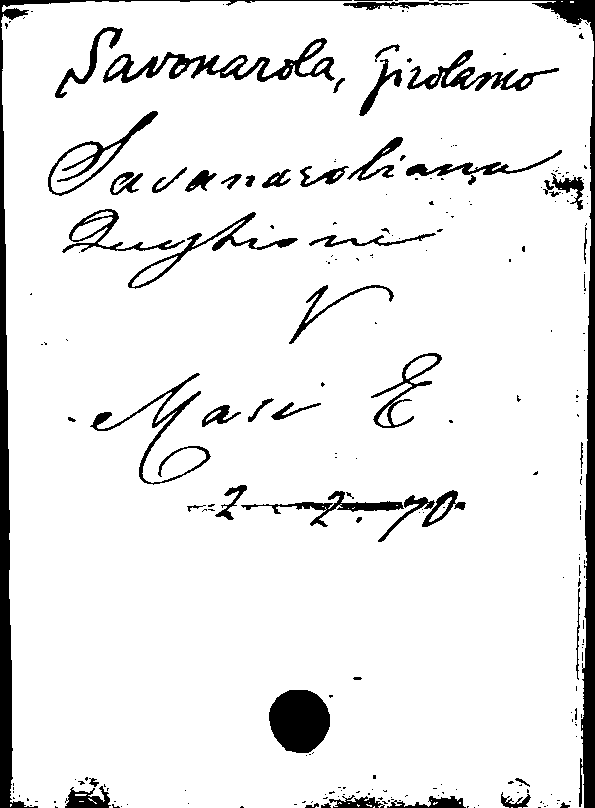 Savonarola, Girolamo
Savanaroliana
Quystione
V
Masi E.
2.2.70